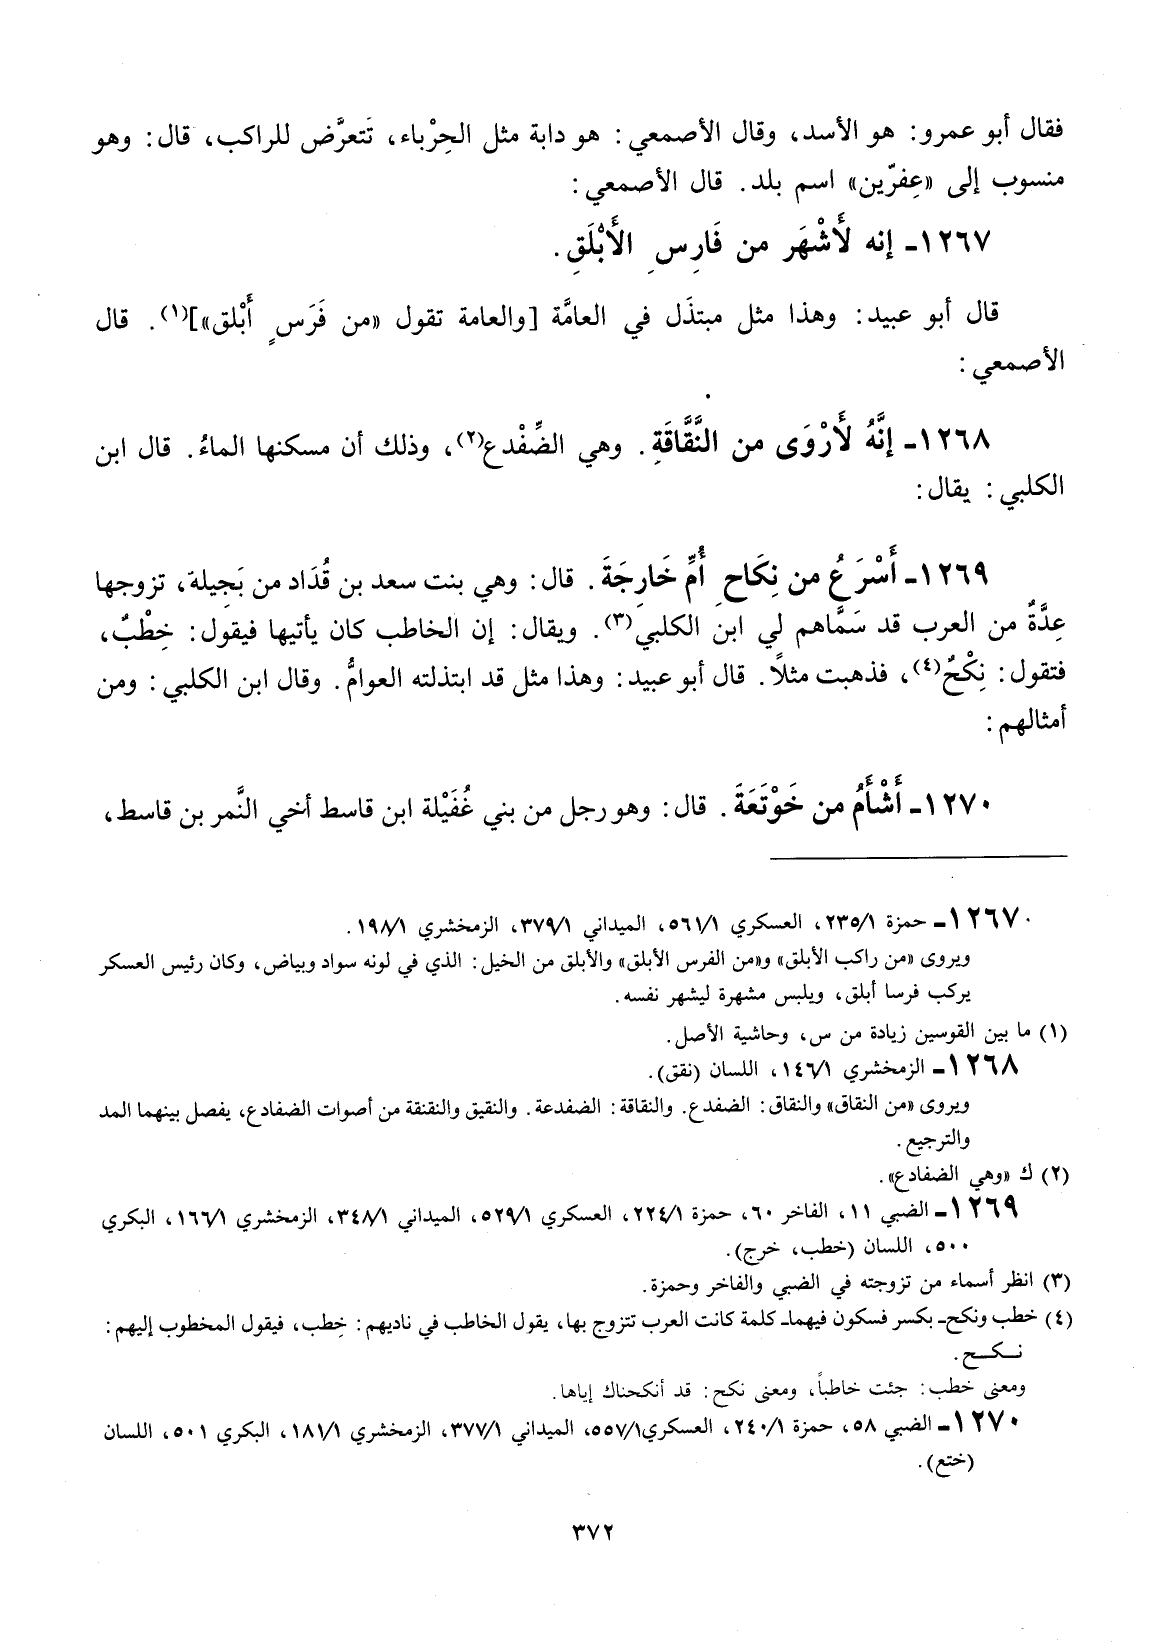 فقال أبو عمرو: هو الأسد، وقال الأصمعي: هو دابة مثل الحِرْباء، تَتعرَّض للراكب، قال: وهو
منسوب إلى «عِفرّين» اسم بلد. قال الأصمعي:
١٢٦٧ـ إنه لَأَشْهَر من فَارِسِ الأَبْلَقِ.
قال أبو عبيد: وهذا مثل مبتذَل في العامَّة [والعامة تقول «من فَرَسٍ أَبْلق»](١). قال
الأصمعي:
١٢٦٨ـ إنَّهُ لَأَرْوَى من النَّقَّاقَةِ. وهي الضِّفْدع(٢)، وذلك أن مسكنها الماءُ. قال ابن
الكلبي: يقال:
١٢٦٩ـ أَسْرَعُ من نِكَاحِ أُمِّ خَارِجَةَ. قال: وهي بنت سعد بن قُدَاد من بَجيلة، تزوجها
عِدَّةٌ من العرب قد سَمَّاهم لي ابن الكلبي(٣). ويقال: إن الخاطب كان يأتيها فيقول: خِطْبٌ،
فتقول: نِكْحٌ(٤)، فذهبت مثلاً. قال أبو عبيد: وهذا مثل قد ابتذلته العوامُّ. وقال ابن الكلبي: ومن
أمثالهم:
١٢٧٠ـ أَشْأَمُ من خَوْتَعَةَ. قال: وهو رجل من بني غُفَيْلة ابن قاسط أخي النَّمر بن قاسط،
١٢٦٧ـ حمزة ٢٣٥/١، العسكري ٥٦١/١، الميداني ٣٧٩/١، الزمخشري ١٩٨/١.
ويروى «من راكب الأبلق» و«من الفرس الأبلق» والأبلق من الخيل: الذي في لونه سواد وبياض، وكان رئيس العسكر
يركب فرسا أبلق، ويلبس مشهرة ليشهر نفسه.
(١) ما بين القوسين زيادة من س، وحاشية الأصل.
١٢٦٨ـ الزمخشري ١٤٦/١، اللسان (نقق).
ويروى «من النقاق» والنقاق: الضفدع. والنقاقة: الضفدعة. والنقيق والنقنقة من أصوات الضفادع، يفصل بينهما المد
والترجيع.
(٢) ك «وهي الضفادع».
١٢٦٩ـ الضبي ١١، الفاخر ٦٠، حمزة ٢٢٤/١، العسكري ٥٢٩/١، الميداني ٣٤٨/١، الزمخشري ١٦٦/١، البكري
٥٠٠، اللسان (خطب، خرج).
(٣) انظر أسماء من تزوجته في الضبي والفاخر وحمزة.
(٤) خطب ونكح ـ بكسر فسكون فيهما ـ كلمة كانت العرب تتزوج بها، يقول الخاطب في ناديهم: خِطب، فيقول المخطوب إليهم:
نـكـح.
ومعنى خطب: جئت خاطباً، ومعنى نكح: قد أنكحناك إياها.
١٢٧٠ـ الضبي ٥٨، حمزة ٢٤٠/١، العسكري٥٥٧/١، الميداني ٣٧٧/١، الزمخشري ١٨١/١، البكري ٥٠١، اللسان
(ختع).
٣٧٢